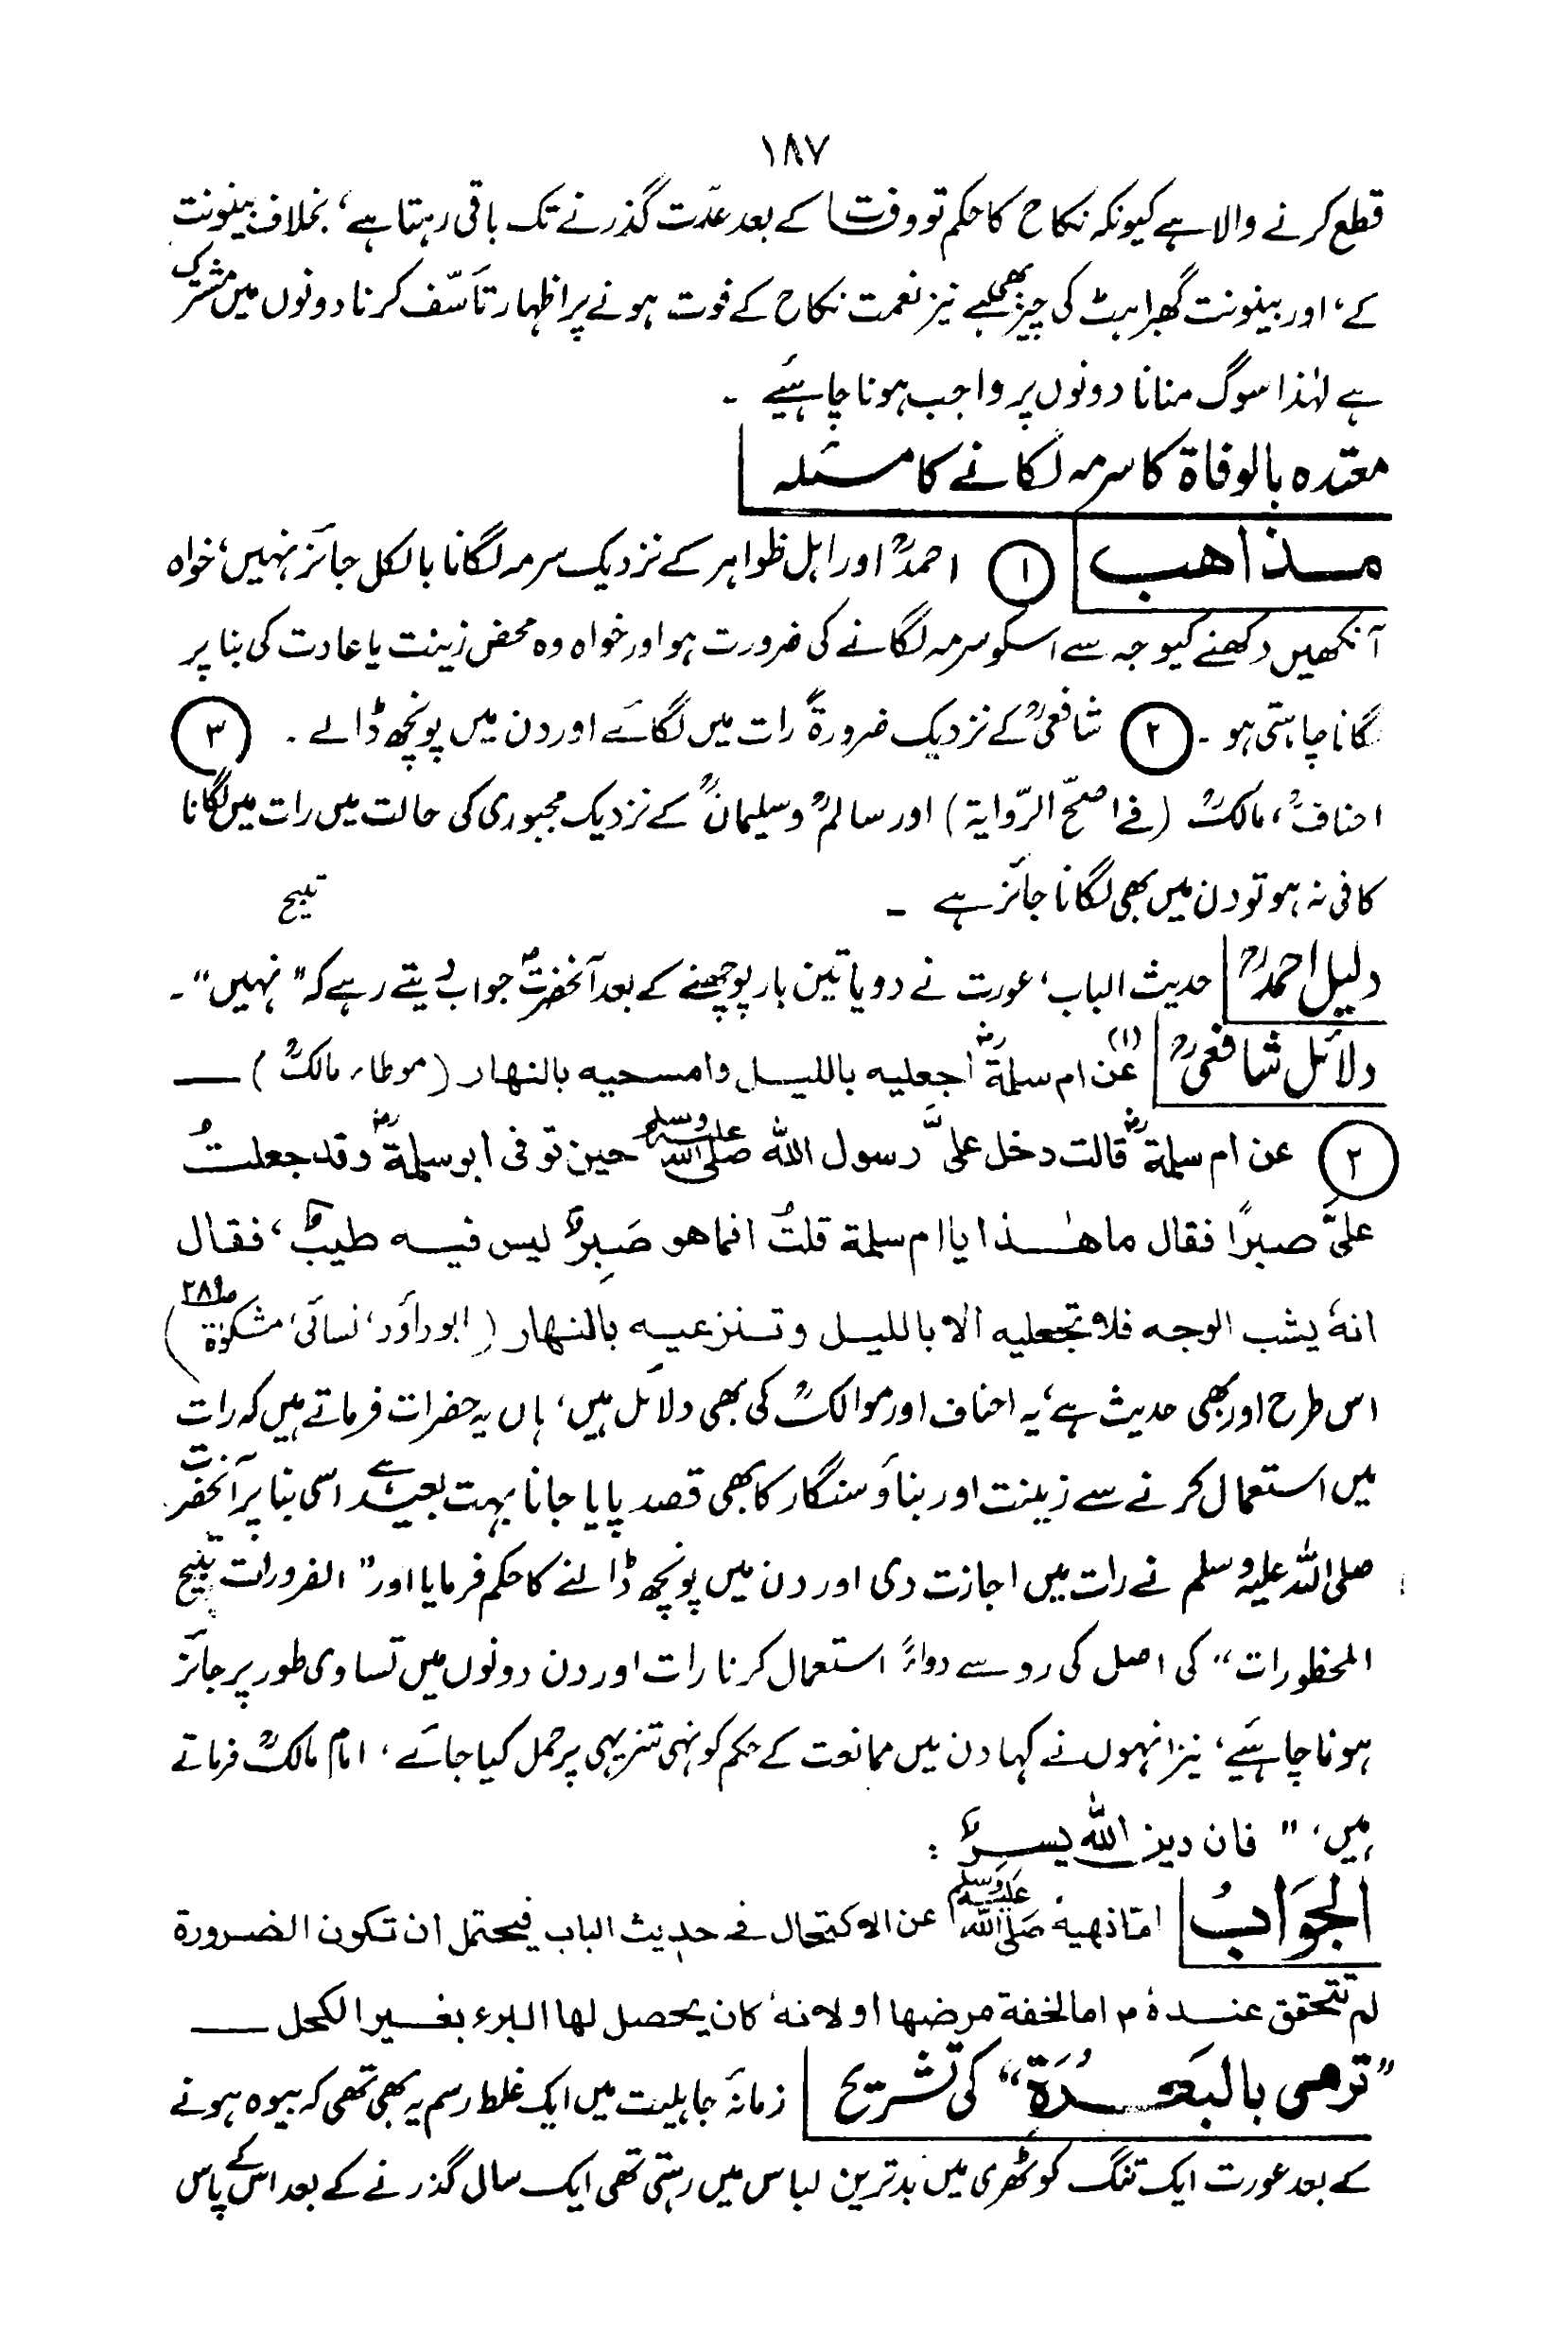 ۱۸۷
قطع کرنے والا ہے کیونکہ نکاح کا حکم تو وفات کے بعد عدّت گذرنے تک باقی رہتا ہے، بخلاف بینونت
کے، اور بینونت گھبراہٹ کی چیز بھی ہے نیز نعمت نکاح کے فوت ہونے پر اظہار تأسّف کرنا دونوں میں مشترک
ہے لہٰذا سوگ منانا دونوں پر واجب ہونا چاہئے ۔
معتدہ بالوفاۃ کا سرمہ لگانے کا مسئلہ
مذاھب ۱ احمدؒ اور اہل ظواہر کے نزدیک سرمہ لگانا بالکل جائز نہیں، خواہ
آنکھیں دکھنے کیوجہ سے اسکو سرمہ لگانے کی ضرورت ہو اور خواہ وہ محض زینت یا عادت کی بنا پر
لگانا چاہتی ہو ۔ ۲ شافعیؒ کے نزدیک ضرورۃً رات میں لگائے اور دن میں پونچھ ڈالے ۔ ۳
احنافؒ، مالکؒ (فے اصحّ الرّوایۃ) اور سالمؒ و سلیمانؒ کے نزدیک مجبوری کی حالت میں رات میں لگانا
کافی نہ ہو تو دن میں بھی لگانا جائز ہے ۔
تبیح
دلیل احمدؒ حدیث الباب، عورت نے دو یا تین بار پوچھنے کے بعد آنحضرتؐ جواب دیتے رہے کہ "نہیں"۔
دلائل شافعیؒ (۱) عن ام سلمۃؓ اجعلیہ باللیل وامسحیہ بالنھار (موطاء مالکؒ) ــــ
۲ عن ام سلمۃؓ قالت دخل علیَّ رسول اللہ صلی اللہ علیہ وسلم حین توفی ابو سلمۃؓ وقد جعلتُ
علیَّ صبرًا فقال ما ھٰذا یا ام سلمۃ قلتُ انما ھو صَبِرٌ لیس فیہ طیبٌ، فقال
انہٗ یشب الوجہ فلا تجعلیہ الا باللیل و تنزعیہ بالنھار (ابو داؤد، نسائی، مشکوٰۃ ص۲۸۹)
اس طرح اور بھی حدیث ہے، یہ احناف اور موالکؒ کی بھی دلائل ہیں، ہاں یہ حضرات فرماتے ہیں کہ رات
میں استعمال کرنے سے زینت اور بناؤ سنگار کا بھی قصد پایا جانا بہت بعید ہے اسی بنا پر آنحضرت
صلی اللہ علیہ وسلم نے رات میں اجازت دی اور دن میں پونچھ ڈالنے کا حکم فرمایا اور "الضرورات تبیح
المحظورات" کی اصل کی رو سے دواءً استعمال کرنا رات اور دن دونوں میں تساوی طور پر جائز
ہونا چاہئے، نیز انہوں نے کہا دن میں ممانعت کے حکم کو نہی تنزیہی پر حمل کیا جائے، امام مالکؒ فرماتے
ہیں، " فان دین اللہ یسرٌ :
الجَوَابُ امّا نھیہٗ صلی اللہ علیہ وسلم عن الاکتحال فے حدیث الباب فیحتمل ان تکون الضرورۃ
لم تتحقق عندہٗ م اما لخفۃ مرضھا او لانہٗ کان یحصل لھا البرء بغیر الکحل ــــ
"ترمی بالبَعرَۃ" کی تشریح زمانۂ جاہلیت میں ایک غلط رسم یہ بھی تھی کہ بیوہ ہونے
کے بعد عورت ایک تنگ کوٹھری میں بدترین لباس میں رہتی تھی ایک سال گذرنے کے بعد اس کے پاس